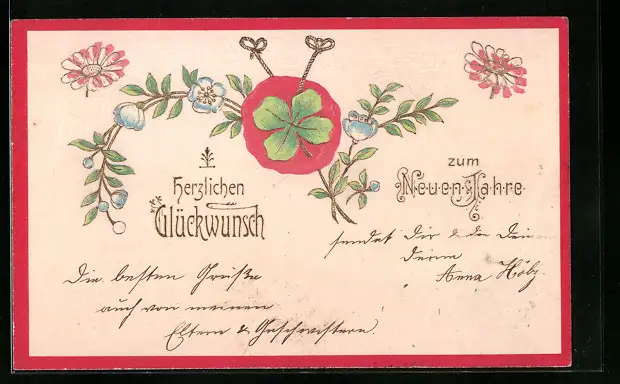 Herzlichen
Glückwunsch
zum
Neuen Jahre
sendet Dir & den Deinen
Deine
Anna
Die besten Grüße
auch von meinen
Eltern & Geschwistern.